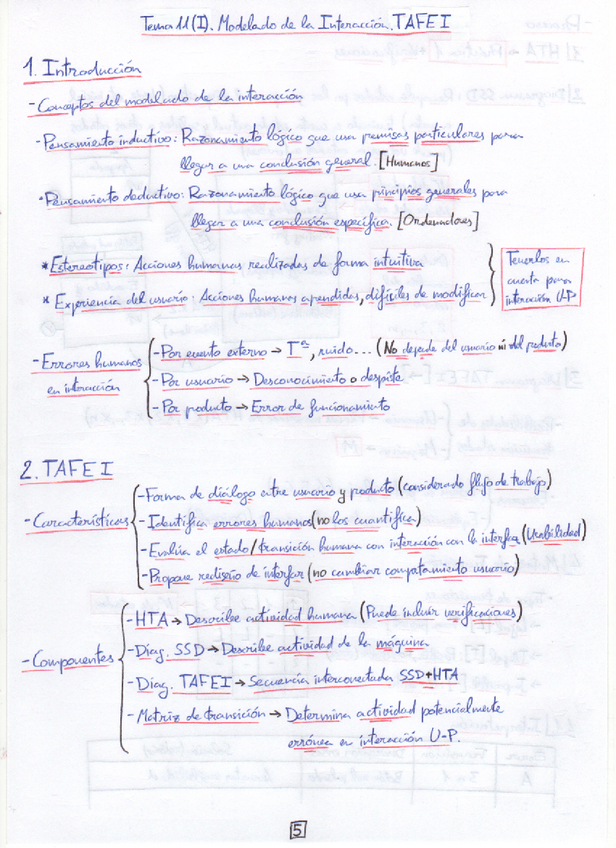 Tema 11 (I). Modelado de la Interacción. TAFEI
1. Introducción
- Conceptos del modelado de la interacción
- Pensamiento inductivo: Razonamiento lógico que usa premisas particulares para
llegar a una conclusión general. [Humanos]
* Pensamiento deductivo: Razonamiento lógico que usa principios generales para
llegar a una conclusión específica. [Ordenadores]
* Estereotipos: Acciones humanas realizadas de forma intuitiva
* Experiencia del usuario: Acciones humanas aprendidas, difíciles de modificar
Tenerlos en
cuenta para
interacción U-P
- Errores humanos
en interacción
- Por evento externo → Tª, ruido... (No depende del usuario ni del producto)
- Por usuario → Desconocimiento o despiste
- Por producto → Error de funcionamiento
2. TAFEI
- Características
- Forma de diálogo entre usuario y producto (considerado flujo de trabajo)
- Identifica errores humanos (no los cuantifica)
- Evalúa el estado/transición humana con interacción con la interfaz (Usabilidad)
- Propone rediseño de interfaz (no cambiar comportamiento usuario)
- Componentes
- HTA → Describe actividad humana (Puede incluir verificaciones)
- Diag. SSD → Describe actividad de la máquina
- Diag. TAFEI → Secuencia interconectada SSD+HTA
- Matriz de transición → Determina actividad potencialmente
errónea en interacción U-P.
5